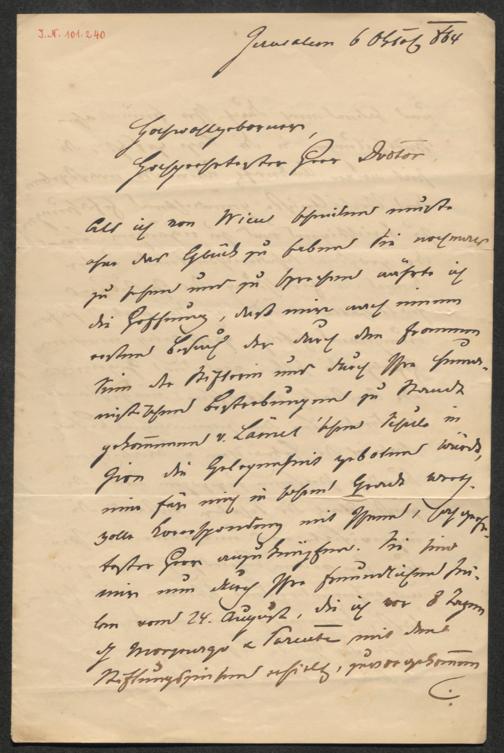 I.N. 101.240
Jerusalem 6 Oktob 864
Hochwohlgeborner,
Hochgeehrtester Herr Doctor
Als ich von Wien scheiden mußte
ohne das Glück zu haben Sie nochmals
zu sehen und zu sprechen nährte ich
die Hoffnung, daß mir nach meinem
ersten Besuch der durch den frommen
Sinn der Stifterin und durch Ihre huma-
nistischen Bestrebungen zu Stande
gekommenen v. Lämel'schen Schule in
Zion die Gelegenheit geboten würde,
eine für mich in hohem Grade werth-
volle Korrespondenz mit Ihnen, hochgeehr-
tester Herr anzuknüpfen. Sie sind
mir nun durch Ihre freundlichen Zei-
len vom 24. August, die ich vor 8 Tagen
Morpurgo & Parente mit dem
Stiftungs erhielt, zuvorgekommen